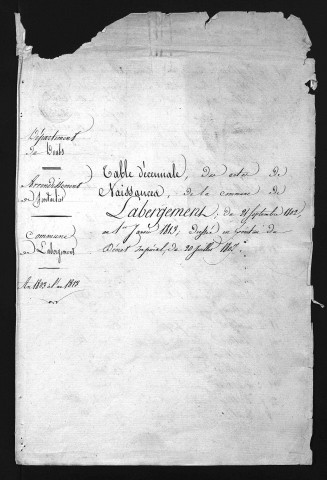 Département
du Doubs
Arrondissement
de Pontarlier
Commune
de Labergement
An 1803 à l'an 1813
Table décennale, des actes de
Naissances, de la commune de
Labergement, du 21 Septembre 1802,
au 1er Janvier 1813, dressée en vertu du
Décret impérial, du 20 Juillet 1807.